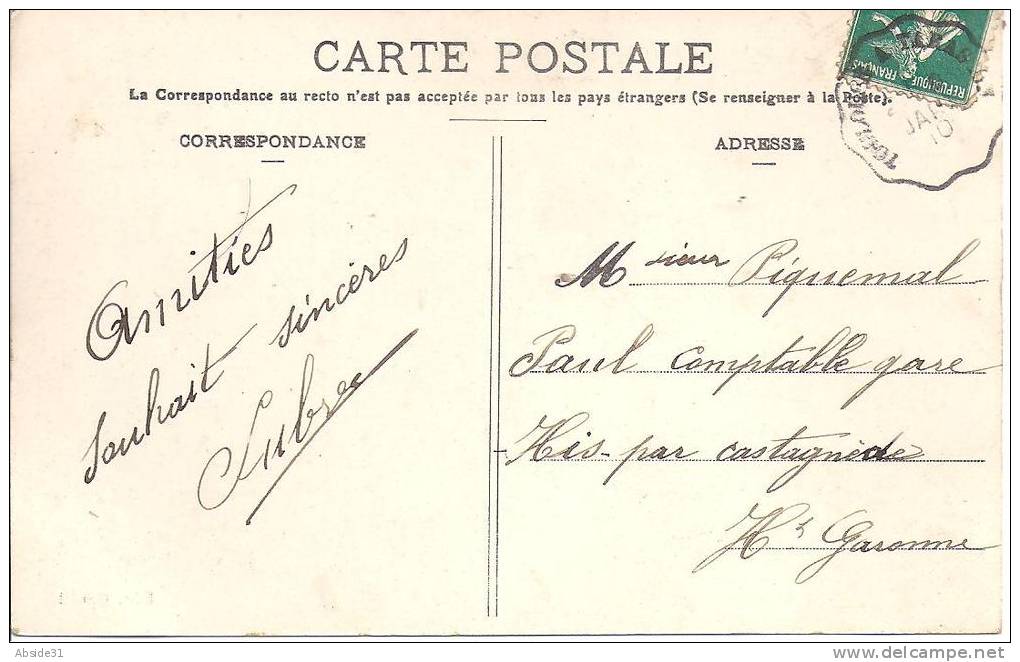 CARTE POSTALE
La Correspondance au recto n'est pas acceptée par tous les pays étrangers (Se renseigner à la Poste).
CORRESPONDANCE
Amitiés
souhait sincères
ADRESSE
Msieur Piquemal
Paul comptable gare
His - par castagnède
Hte Garonne
REPUBLIQUE FRANÇAISE
JAN
10
Abside31
www.delcampe.net